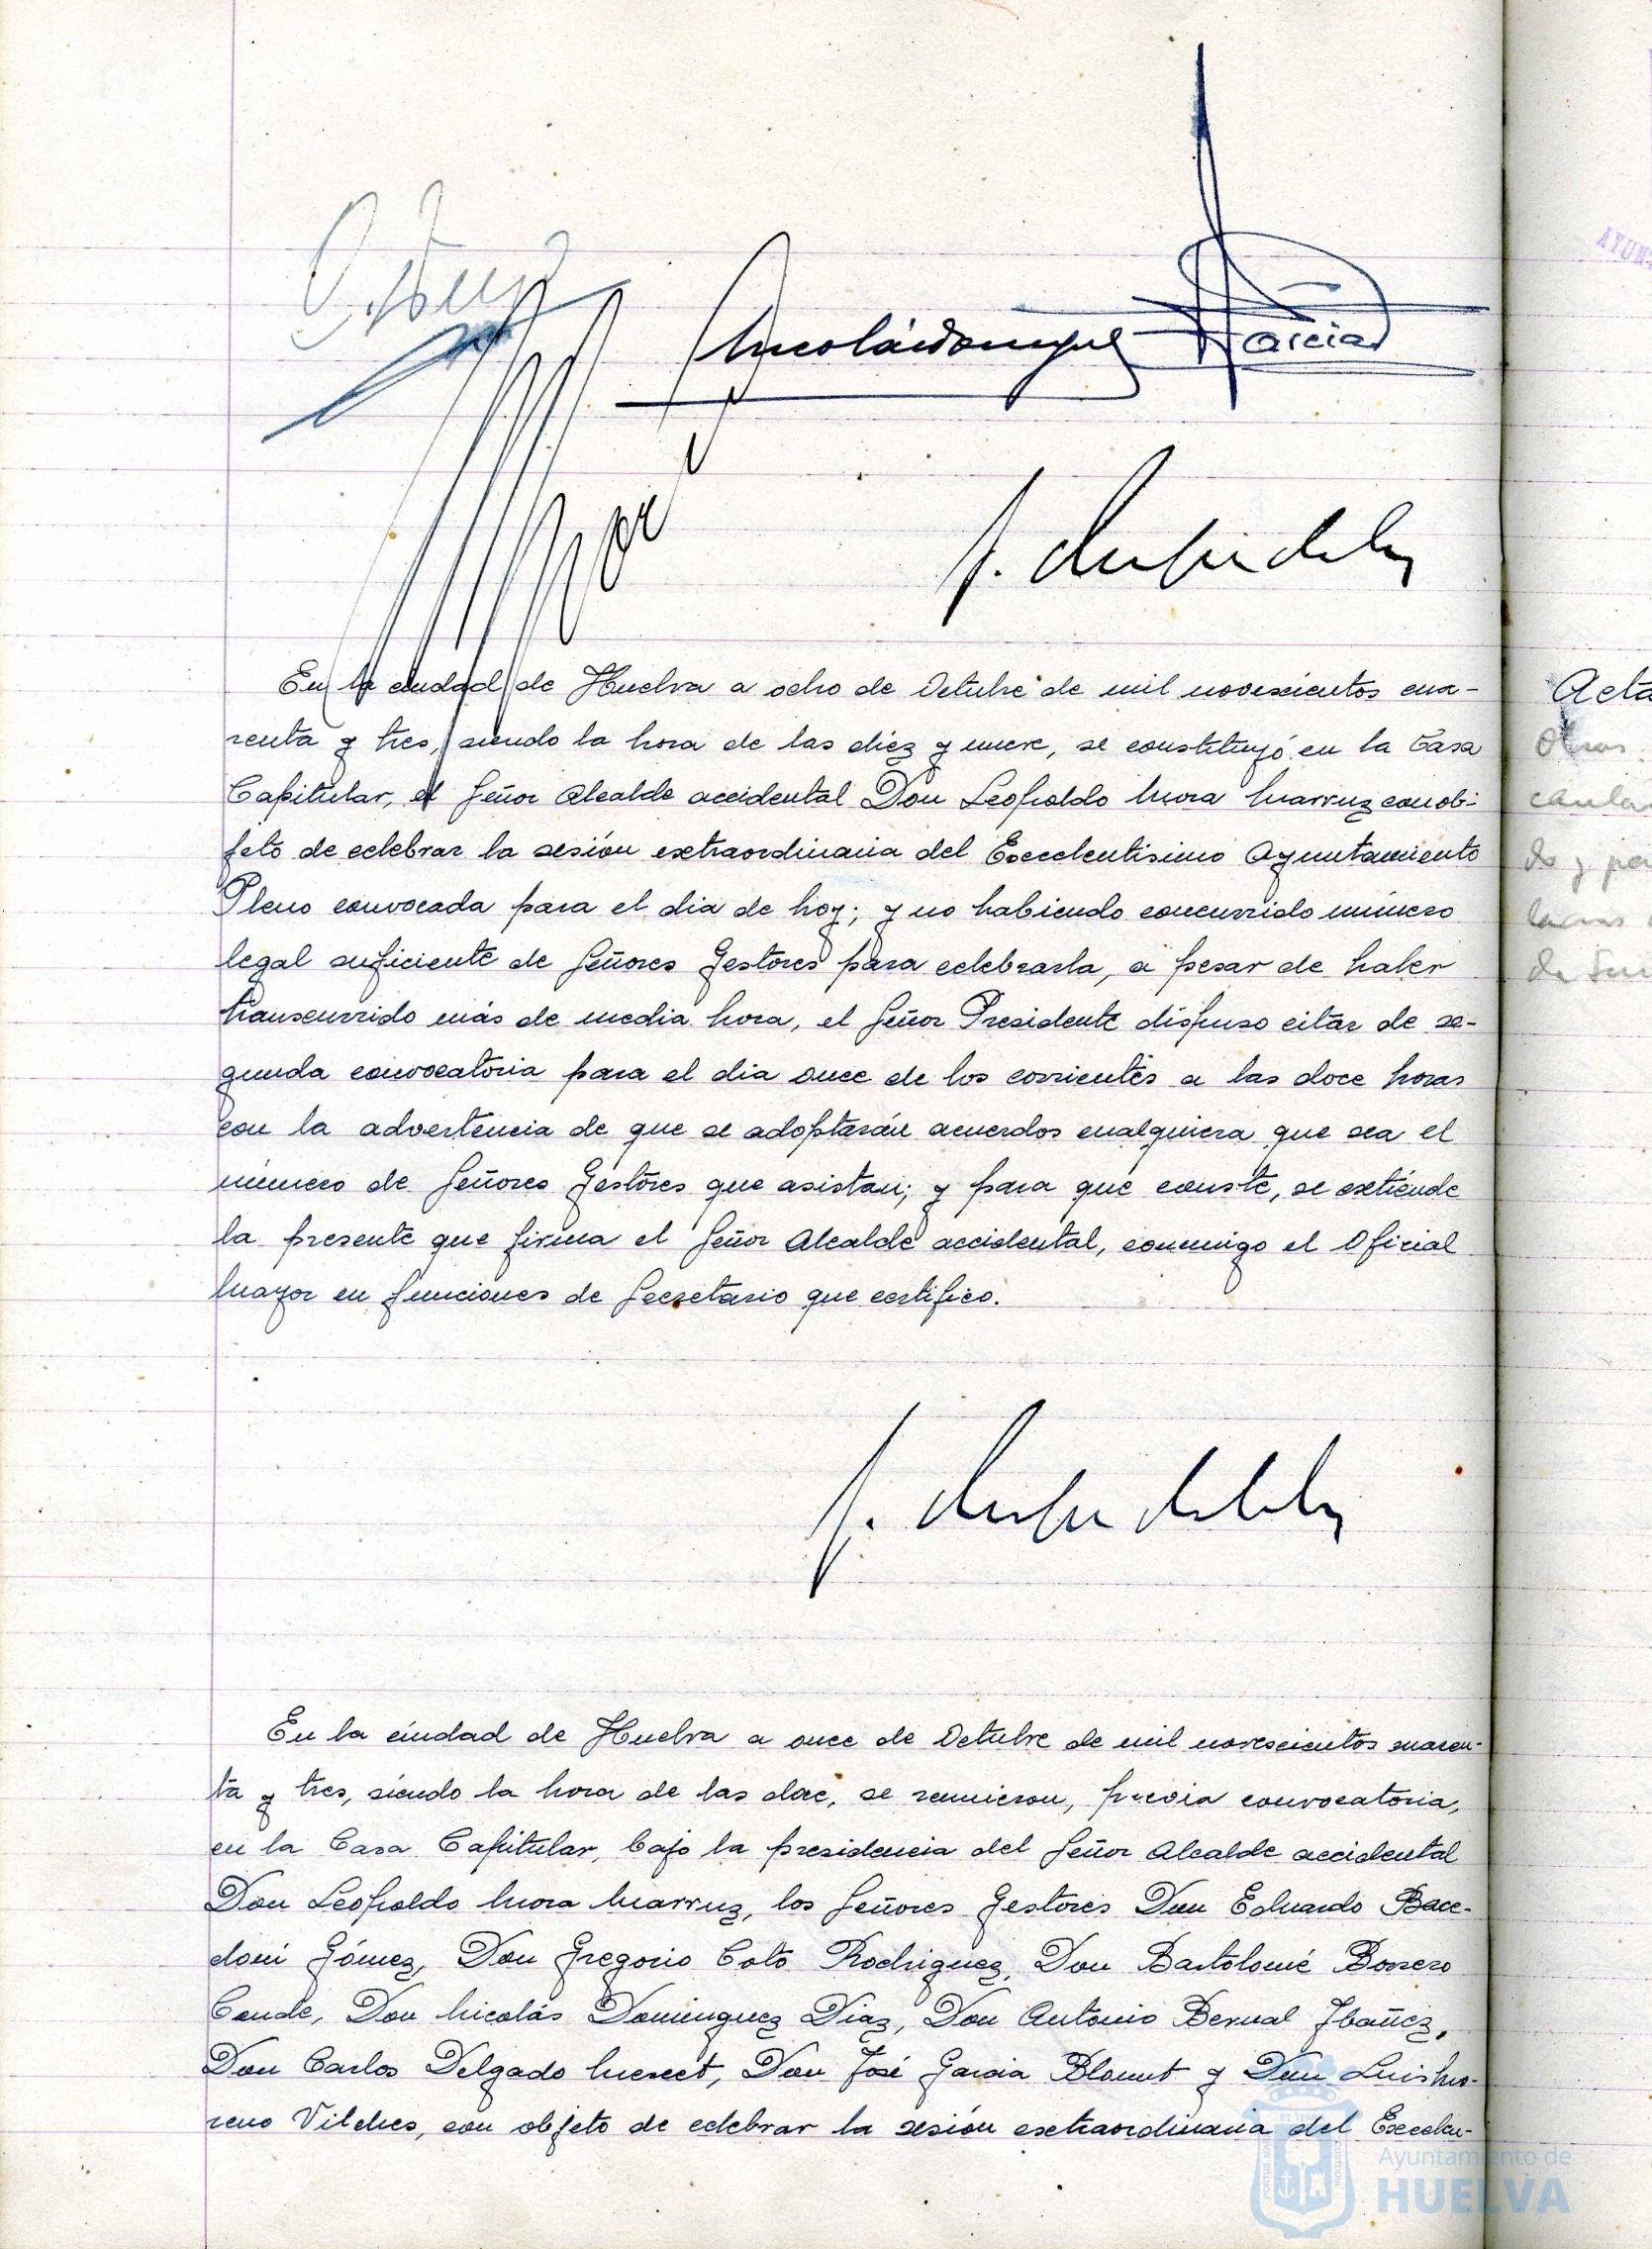 García
En la ciudad de Huelva a ocho de Octubre de mil novescientos cua-
renta y tres, siendo la hora de las diez y nueve, se constituyó en la Casa
Capitular, el Señor Alcalde accidental Don Leopoldo Mora Marruz con ob-
jeto de celebrar la sesión extraordinaria del Excelentisimo Ayuntamiento
Pleno convocada para el dia de hoy; y no habiendo concurrido número
legal suficiente de Señores Gestores para celebrarla, a pesar de haber
transcurrido más de media hora, el Señor Presidente dispuso citar de se-
gunda convocatoria para el dia once de los corrientes a las doce horas
con la advertencia de que se adoptarán acuerdos cualquiera que sea el
número de Señores Gestores que asistan; y para que conste, se extiende
la presente que firma el Señor Alcalde accidental, conmigo el Oficial
Mayor en funciones de Secretario que certifico.
En la ciudad de Huelva a once de Octubre de mil novescientos cuaren-
ta y tres, siendo la hora de las doce, se reunieron, previa convocatoria,
en la Casa Capitular, bajo la presidencia del Señor Alcalde accidental
Don Leopoldo Mora Marruz, los Señores Gestores Don Eduardo Bace-
doni Gómez, Don Gregorio Coto Rodriguez, Don Bartolomé Borrero
Conde, Don Nicolás Dominguez Diaz, Don Antonio Bernal Ibañez,
Don Carlos Delgado Merect, Don José Garcia Blount y Don Luis Mo-
reno Vilches, con objeto de celebrar la sesión extraordinaria del Excelen-
Acta
Ayuntamiento de
HUELVA